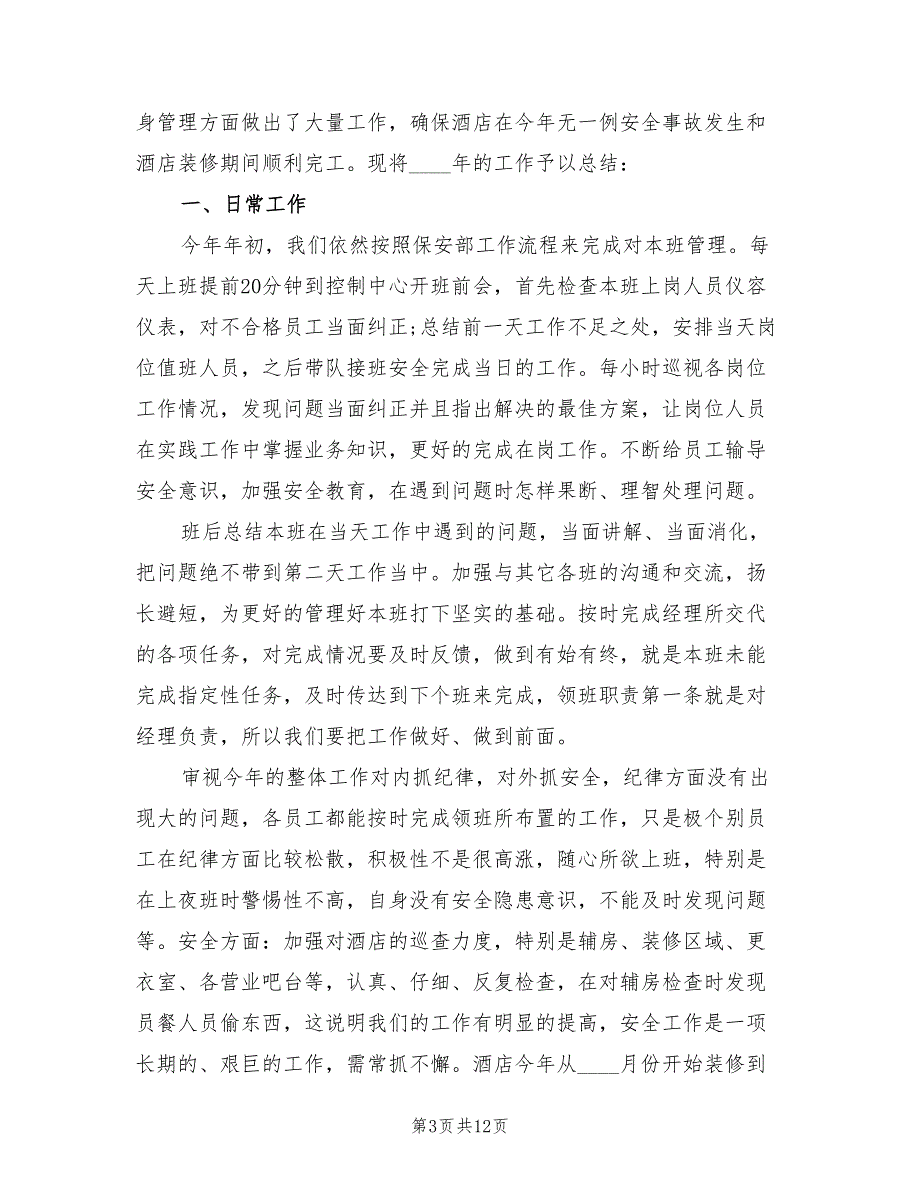 身管理方面做出了大量工作，确保酒店在今年无一例安全事故发生和
酒店装修期间顺利完工。现将____年的工作予以总结：
一、日常工作
今年年初，我们依然按照保安部工作流程来完成对本班管理。每
天上班提前20分钟到控制中心开班前会，首先检查本班上岗人员仪容
仪表，对不合格员工当面纠正;总结前一天工作不足之处，安排当天岗
位值班人员，之后带队接班安全完成当日的工作。每小时巡视各岗位
工作情况，发现问题当面纠正并且指出解决的最佳方案，让岗位人员
在实践工作中掌握业务知识，更好的完成在岗工作。不断给员工输导
安全意识，加强安全教育，在遇到问题时怎样果断、理智处理问题。
班后总结本班在当天工作中遇到的问题，当面讲解、当面消化，
把问题绝不带到第二天工作当中。加强与其它各班的沟通和交流，扬
长避短，为更好的管理好本班打下坚实的基础。按时完成经理所交代
的各项任务，对完成情况要及时反馈，做到有始有终，就是本班未能
完成指定性任务，及时传达到下个班来完成，领班职责第一条就是对
经理负责，所以我们要把工作做好、做到前面。
审视今年的整体工作对内抓纪律，对外抓安全，纪律方面没有出
现大的问题，各员工都能按时完成领班所布置的工作，只是极个别员
工在纪律方面比较松散，积极性不是很高涨，随心所欲上班，特别是
在上夜班时警惕性不高，自身没有安全隐患意识，不能及时发现问题
等。安全方面：加强对酒店的巡查力度，特别是辅房、装修区域、更
衣室、各营业吧台等，认真、仔细、反复检查，在对辅房检查时发现
员餐人员偷东西，这说明我们的工作有明显的提高，安全工作是一项
长期的、艰巨的工作，需常抓不懈。酒店今年从____月份开始装修到
第3页共12页